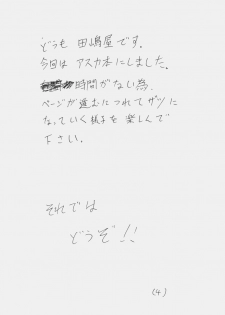 どうも 田嶋屋です.
今回は アスカ本にしました.
時間がない為.
ページが進むにつれてザツに
なっていく様子を 楽しんで
下さい.
それでは
どうぞ!!
(4)